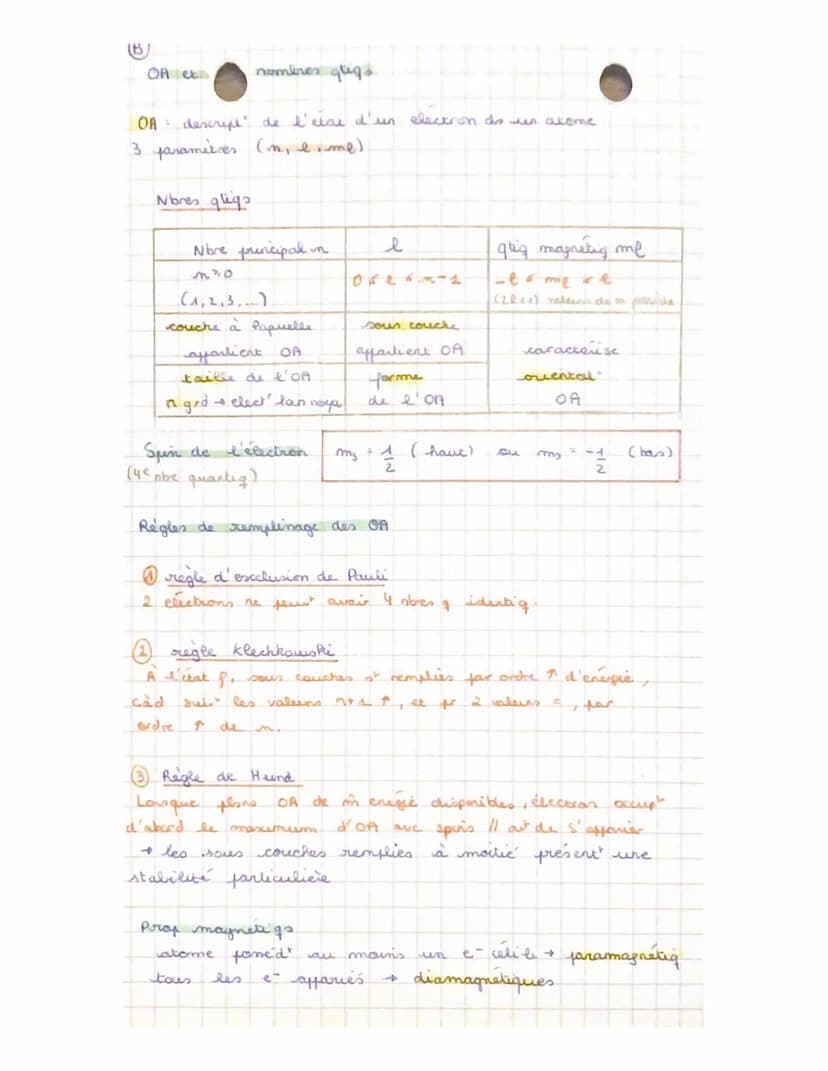 B
OA et nombres qtiqs
OA : descript° de l'état d'un électron ds un atome
3 paramètres (n, l, ml)
Nbres qtiqs
Nbre principal n
n > 0
(1,2,3,...)
l
0 ≤ l ≤ n-1
qtiq magnétiq ml
-l ≤ ml ≤ l
(2l+1) valeurs de m possible
couche à laquelle
appartient OA
sous couche
appartient OA
caractérise
orientat°
OA
taille de l'OA
n grd → elect° loin noyau
forme
de l'OA
Spin de l'électron
(4e nbre quantiq)
ms = 1/2 (haut) ou ms = -1/2 (bas)
Règles de remplissage des OA
① règle d'exclusion de Pauli
2 électrons ne peuvt avoir 4 nbres q identiq.
② règle Klechkowski
À l'état f, sous couches st remplies par ordre ↑ d'énergie,
càd suivt les valeurs n+l ↑, et pr 2 valeurs =, par
ordre ↑ de n.
③ Règle de Hund
Lorsque plsrs OA de m̂ energie disponibles, électron occupt
d'abord le maximum d'OA avc spins // avt de s'apparier
→ les sous couches remplies à moitié présentt une
stabilité particulière
Prop magnétiqs
atome possèdt au moins un e- célib → paramagnétiq
tous les e- appariés → diamagnétiques